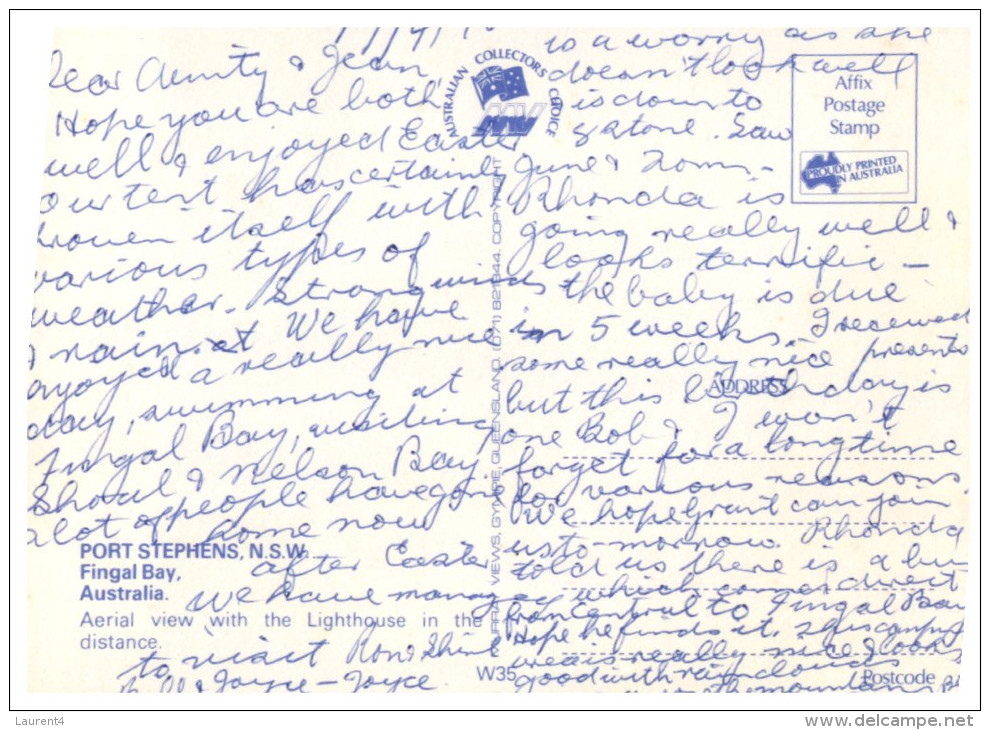 Dear Aunty & Jean,
Hope you are both
well & enjoyed Easter
our tent has certainly
proven itself with
various types of
weather. Strong winds
& rain. We have
enjoyed a really nice
day, swimming at
Fingal Bay, visiting
Shoal & Nelson Bay
alot of people have gone
home now
after Easter
We have managed
to visit Ron & Shirl
& Joyce - Joyce
is a worry as she
doesn't look well
is down to
9 stone. Saw
June & Tom -
Rhonda is
going really well &
looks terrific -
the baby is due
in 5 weeks. I received
some really nice presents
but this birthday is
one Bob & I won't
forget for a long time
for various reasons.
We hope Grant can join
us to-morrow. Rhonda
told us there is a bus
which comes direct
from Central to Fingal Bay
Hope he finds it. This camping
area is really nice & looks
good with rain clouds
the mountains
AUSTRALIAN COLLECTORS CHOICE
NV
Affix
Postage
Stamp
PROUDLY PRINTED
IN AUSTRALIA
ADDRESS
VIEWS, GYMPIE, QUEENSLAND. (071) 821844. COPYRIGHT
PORT STEPHENS, N.S.W.
Fingal Bay,
Australia.
Aerial view with the Lighthouse in the
distance.
W35
Postcode
Laurent4
www.delcampe.net